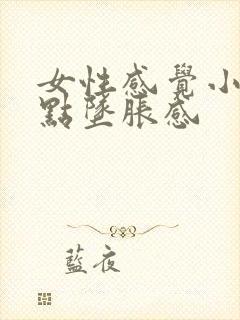 女性感覺小
點墜脹感
藍夜